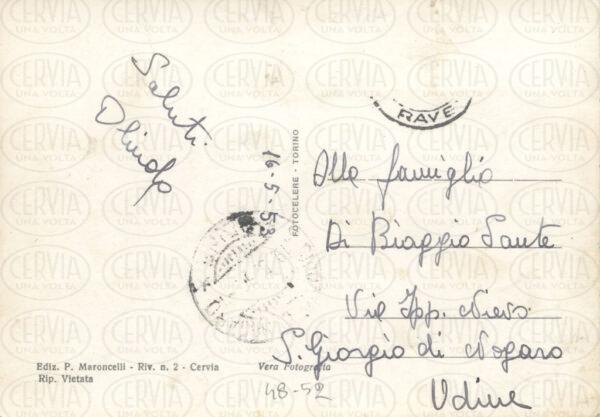 Saluti
Olindo
16-5-53
FOTOCELERE - TORINO
RAVE
Alla famiglia
Di Biaggio Sante
Via Ipp. Nievo
S. Giorgio di Nogaro
Udine
Ediz. P. Maroncelli - Riv. n. 2 - Cervia
Rip. Vietata
Vera Fotografia
48-52
CERVIA
UNA VOLTA